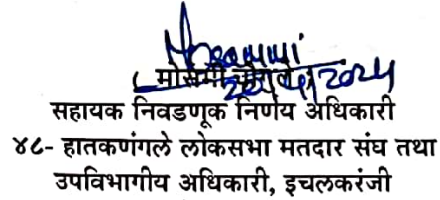 ( मोसमी चौगुले )
सहायक निवडणूक निर्णय अधिकारी
४८- हातकणंगले लोकसभा मतदार संघ तथा
उपविभागीय अधिकारी, इचलकरंजी